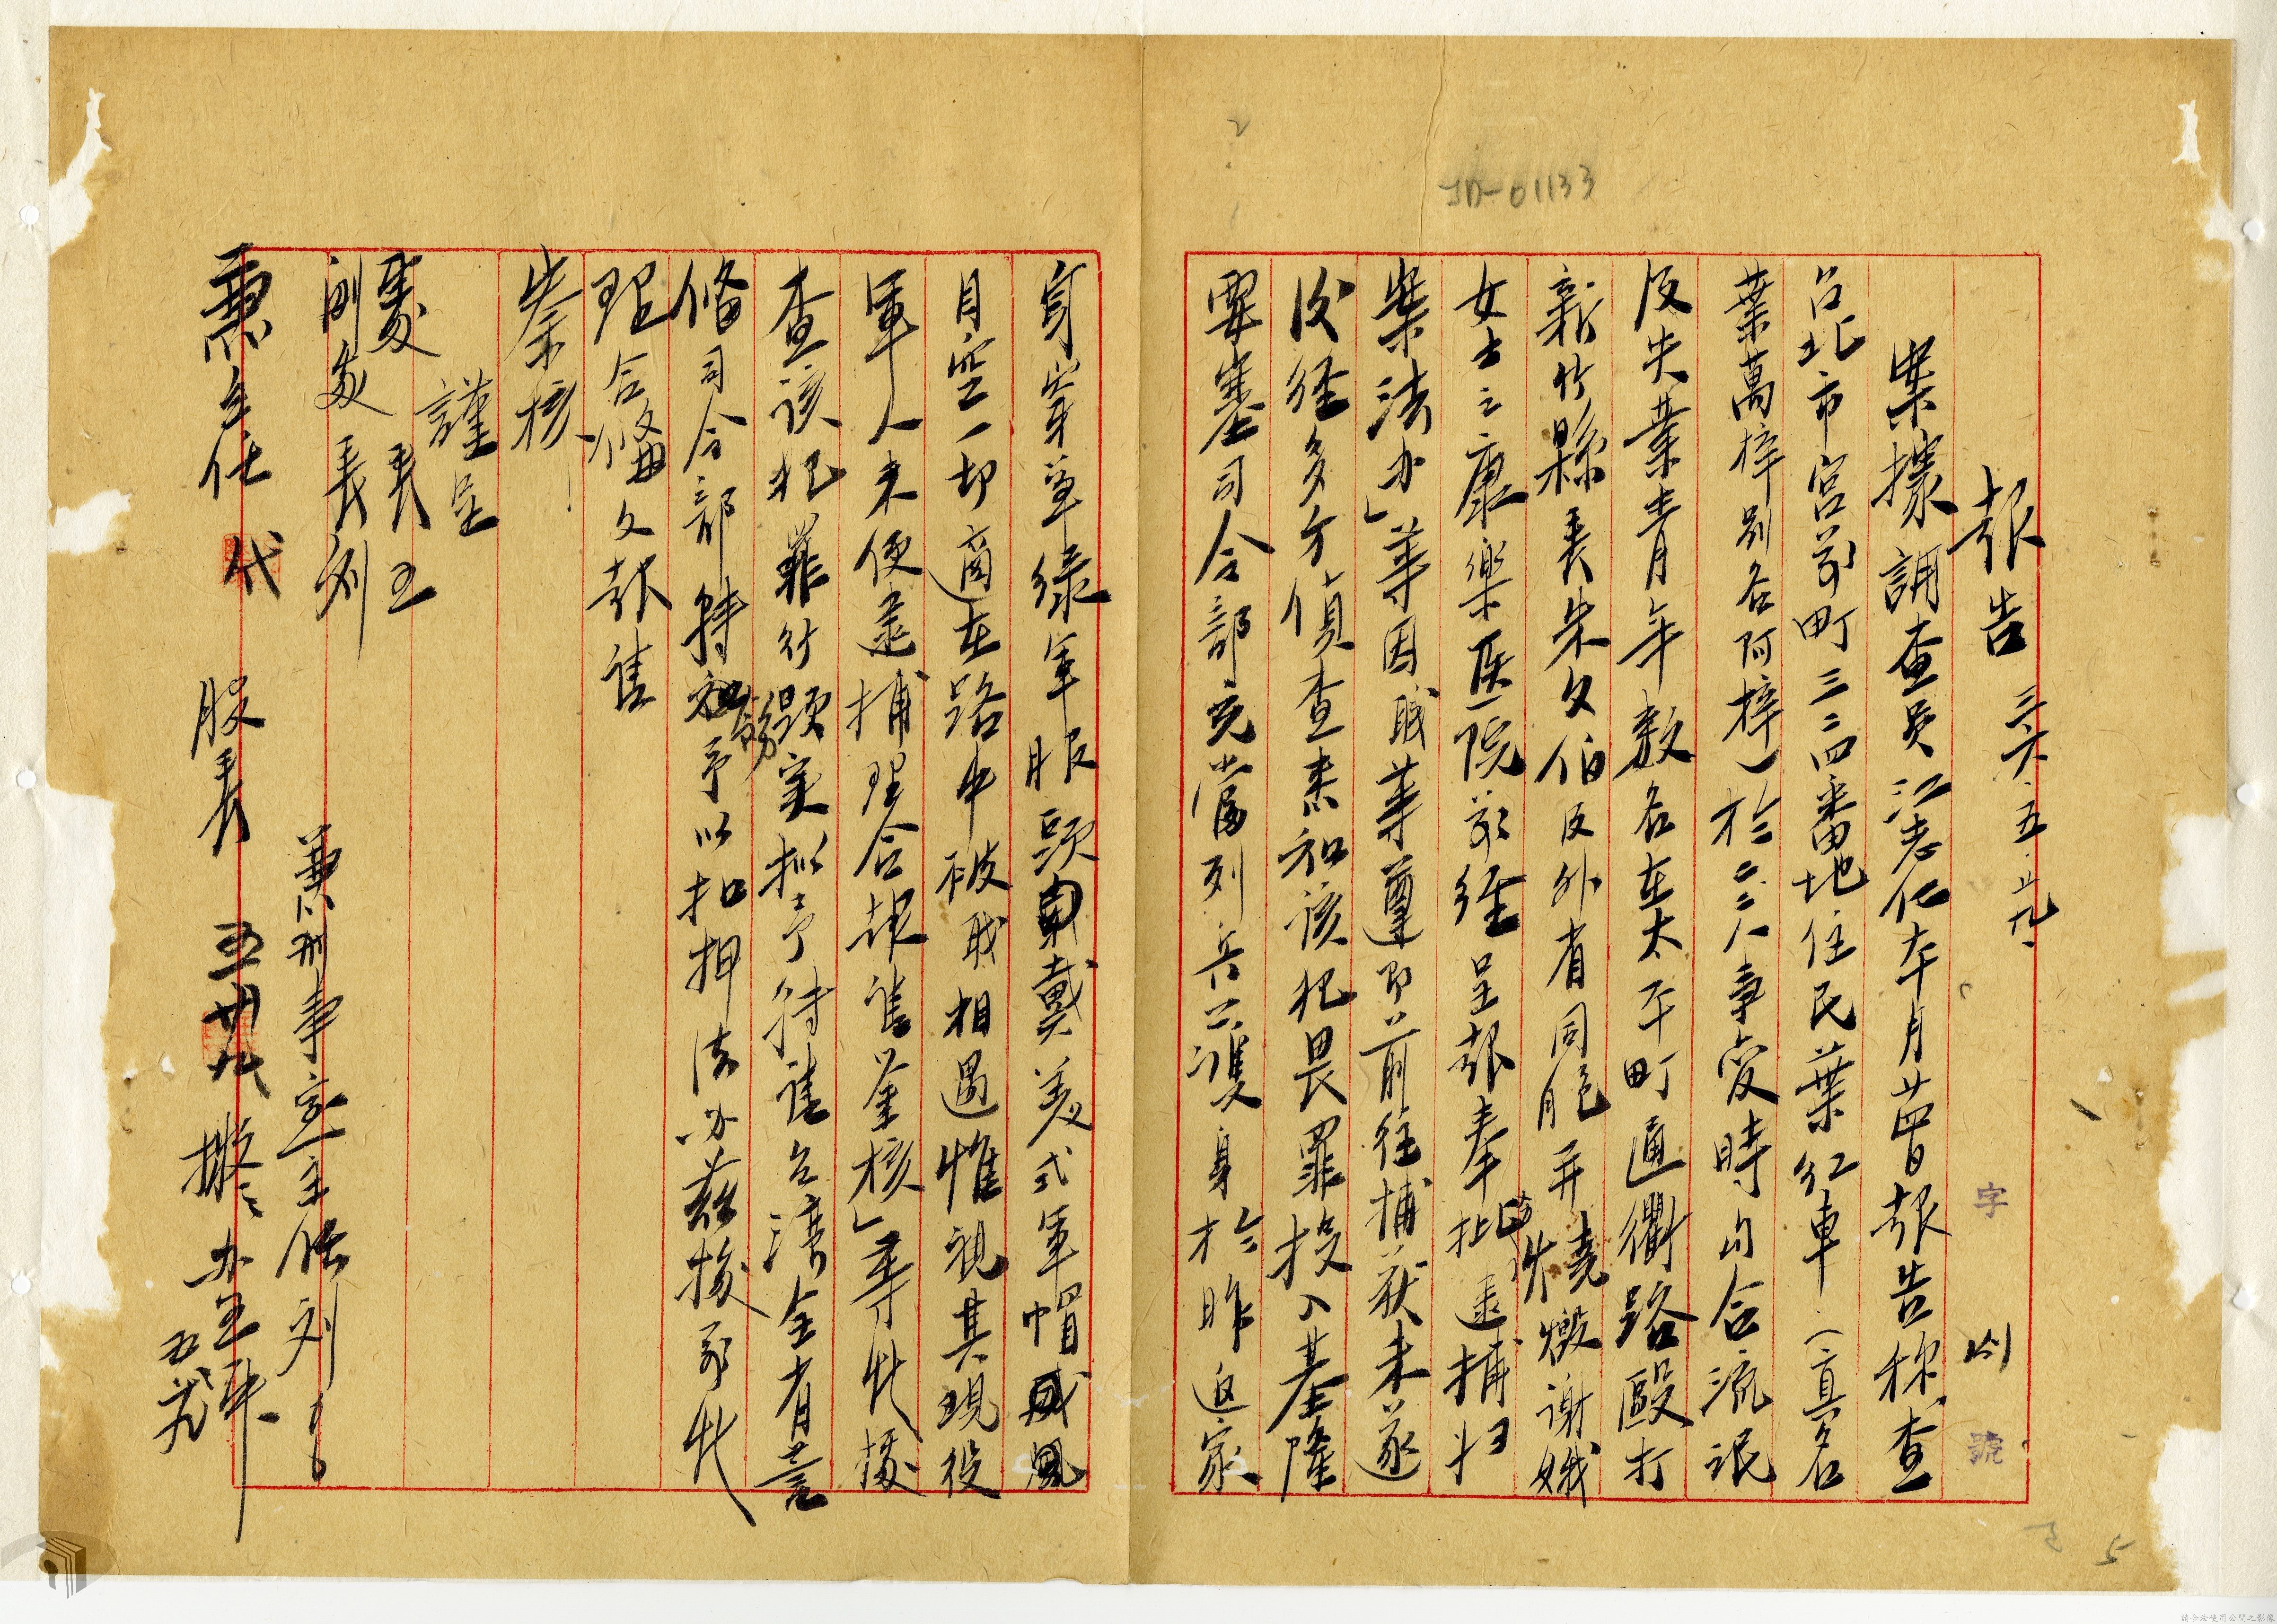 JD-01133
報告 三六、五、廿九、
字 號
案據調查員江志仁本月廿四日報告稱「查
台北市宮前町三二四番地住民葉紅車（真名
葉萬梓別名阿梓）於二二八事變時勾合流氓
及失業青年數名在太平町通衢路毆打
新竹縣長朱文伯及外省同胞并燒燬謝娥
女士之康樂医院前經呈報奉批速捕歸
案法办」等因職等遵即前往捕获未遂
後經多方偵查悉知該犯畏罪投入基隆
要塞司令部充當列兵一獲身於昨返家
身穿草綠軍服頭戴美式軍帽威風
目空一切適在路中被職相遇惟視其現役
軍人未便逮捕理合報請鑒核」等情據
查該犯罪行顯實擬予轉請台灣全省警
備司令部轉飭予以扣押法办茲據前情
理合備文報請
察核
謹呈
處長王
副處長劉
兼刑事室主任劉
兼主任 代
股長
五廿九
擬办